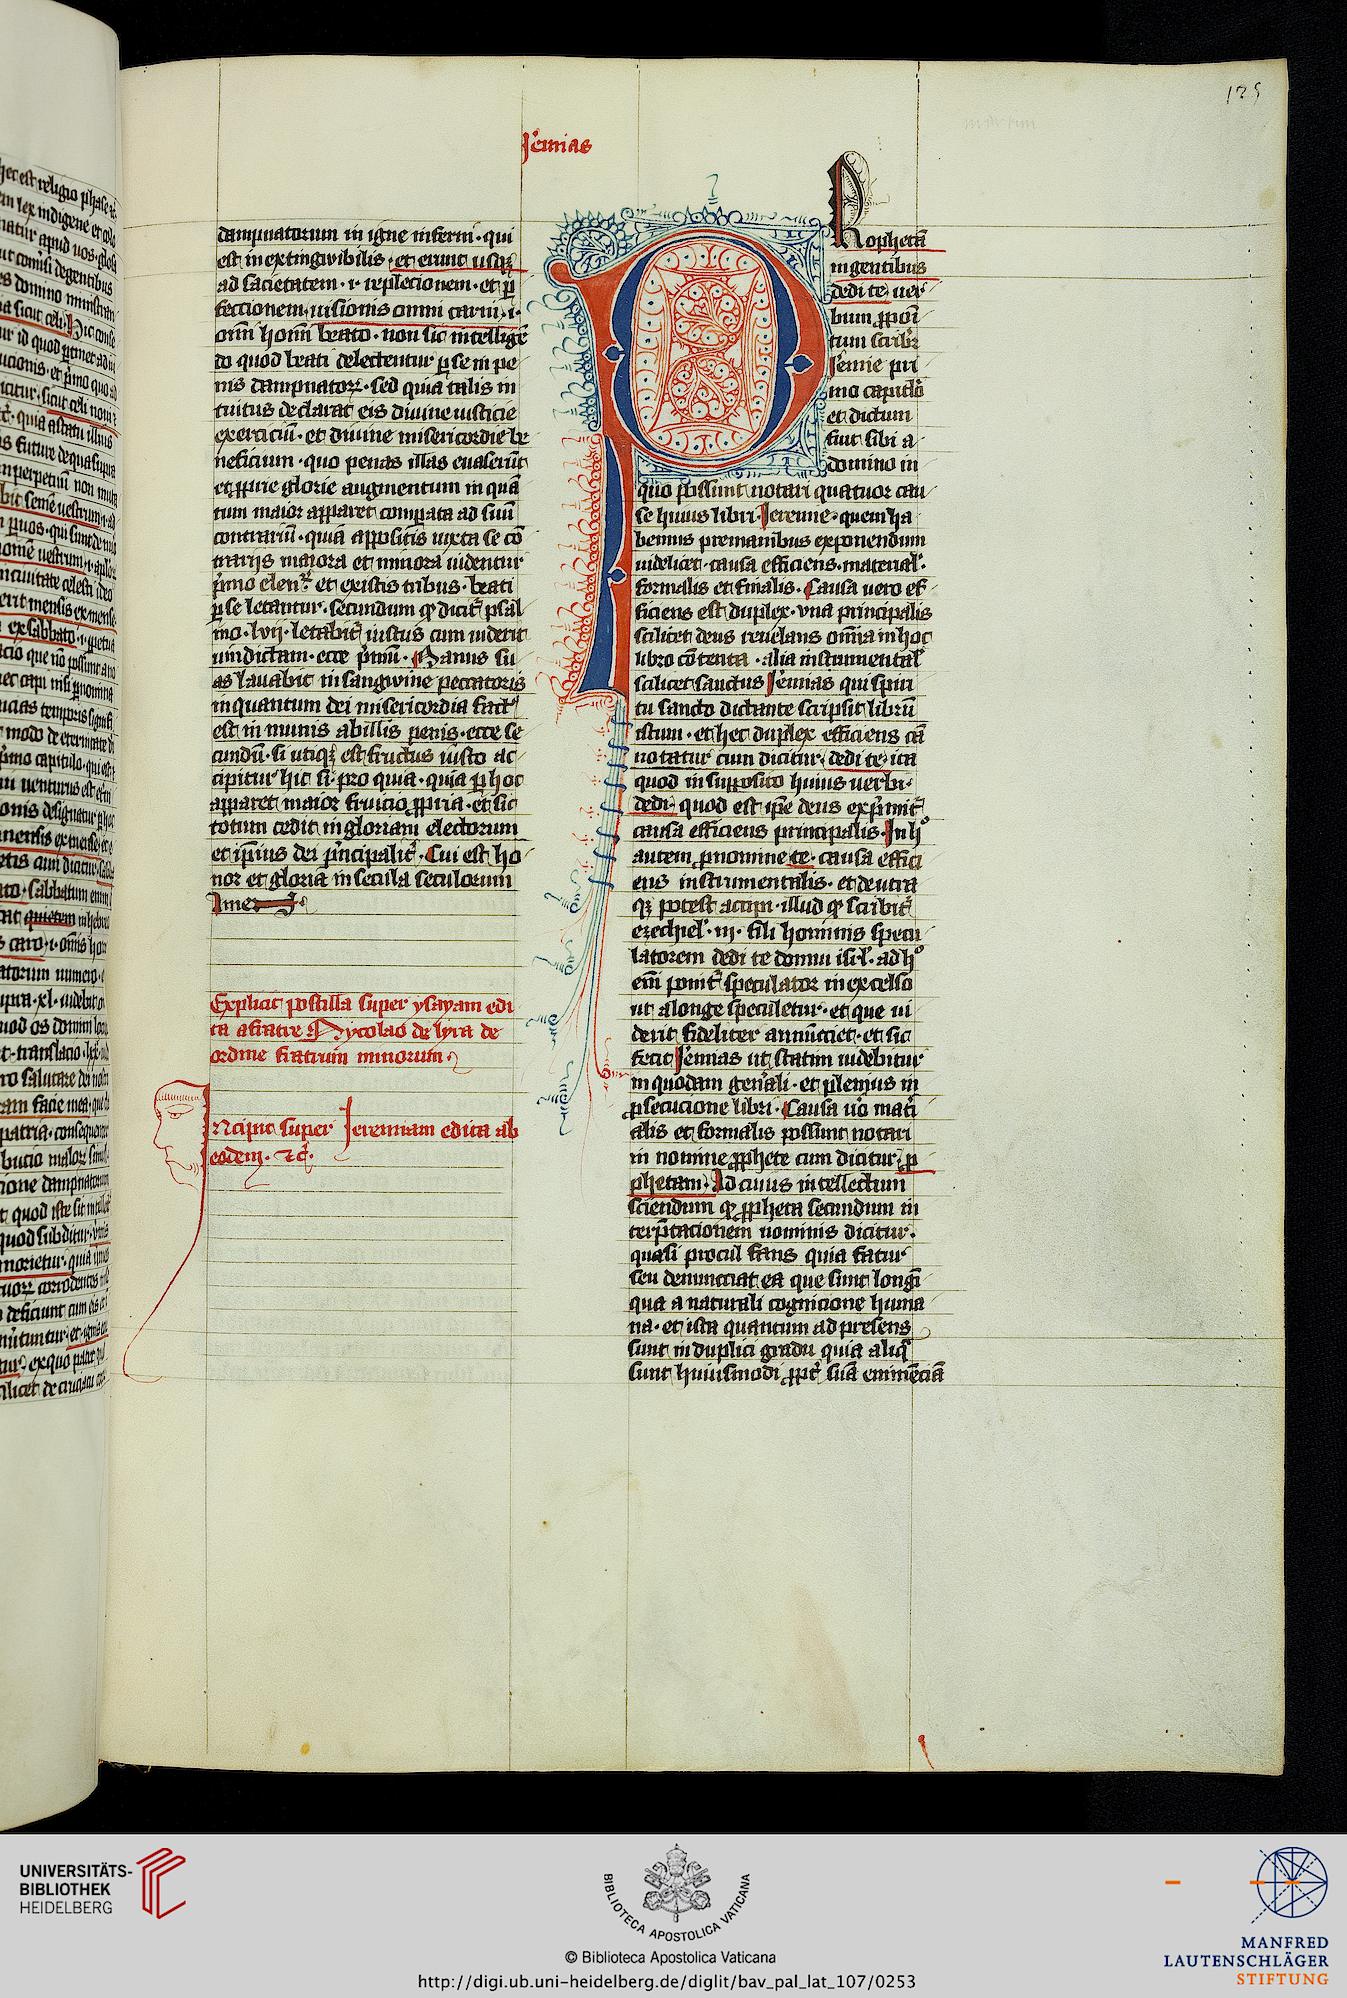 125
Jeremias
dampnatorum in igne inferni · qui
est inextingwibilis · et erunt usq3
ad sacietatem · i · replecionem · et p
fectionem · uisionis omni carni · i ·
om̄i hom̄i beato · non sic intellige͂
do quod beati delectentur p se in pe
nis dampnatorꝝ · sed quia talis in
tuitus declarat eis diuine iusticie
exerciciū · et diuine misericordie be
neficium · quo penas illas euaserūt
et ꝓprie glorie augmentum in quā
tum maior apparet comparata ad suū
contrariū · quia appositis iuxta se cō
trarijs maiora et minora uidentur
primo elencꝝ · et ex istis tribus · beati
p se letantur · secundum ꝙ dicit̄ psal
mo · lvii · letabit̄ iustus cum uiderit
uindictam · ecce p̄mū · Manus su
as lauabit in sangwine peccatoris
in quantum dei misericordia fact̄
est inmunis ab illis penis · ecce se
cundū · si utiq3 est fructus iusto ac
cipitur hic si · pro quia · quia p hoc
apparet maior fruicio ꝓpria · et sic
totum cedit in gloriam electorum
et ip̄ius dei p̄ncipalit̄ · Cui est ho
nor et gloria in secula seculorum
Amen
Explicit postilla super ysayam edi
ta a fratre Nycolao de lyra de
ordine fratrum minorum ·
Incipit super Jeremiam edita ab
eodem · ⁊c̄ ·
PRophetā
in gentibus
dedi te · uer
bum ꝓpoī
tum scribr̄
Jeremie pri
mo capitulo
et dictum
fuit sibi a
domino in
quo possunt notari quatuor cau
se huius libri · Jeremie · quem ha
bemus pre manibus exponendum
uidelicet · causa efficiens · material̄ ·
formalis et finalis · Causa uero ef
ficiens est duplex · vna principalis
scilicet deus reuelans om̄ia in hoc
libro cōtenta · alia instrumental̄
scilicet sanctus Jeremias qui spiri
tu sancto dictante scripsit librū
istum · et hec duplex efficiens cā
notatur cum dicitur · dedi te · ita
quod in supposito huius uerbi ·
dedi · quod est ip̄e deus exp̄mit̄
causa efficiens principalis · In hº
autem pronomine te · causa effici
ens instrumentalis · et de utra
q3 potest accipi · illud ꝙ scribit̄
ezechiel̄ · iii · fili hominis specu
latorem dedi te domui isrl̄ · ad hº
em̄ ponit̄ speculator in excelso
ut a longe speculetur · et que ui
derit fideliter annūcciet · et sic
fecit Jeremias ut statim uidebitur
in quodam gen̄ali · et plenius in
ꝓsecucione libri · Causa uº mat̄i
alis et formalis possunt notari
in nomine ꝓphete cum dicitur · ꝓ
phetam · Ad cuius intellectum
sciendum ꝙ ꝓpheta secundum in
terp̄tacionem nominis dicitur ·
quasi procul fans quia fatur
seu denuncciat ea que sunt longī
qua a naturali cognicione huma
na · et ista quantum ad presens
sunt in duplici gradu quia aliq̄
sunt huiusmodi ꝓpt̄ suā eminēciā
UNIVERSITÄTS-
BIBLIOTHEK
HEIDELBERG
BIBLIOTECA APOSTOLICA VATICANA
© Biblioteca Apostolica Vaticana
http://digi.ub.uni-heidelberg.de/diglit/bav_pal_lat_107/0253
MANFRED
LAUTENSCHLÄGER
STIFTUNG